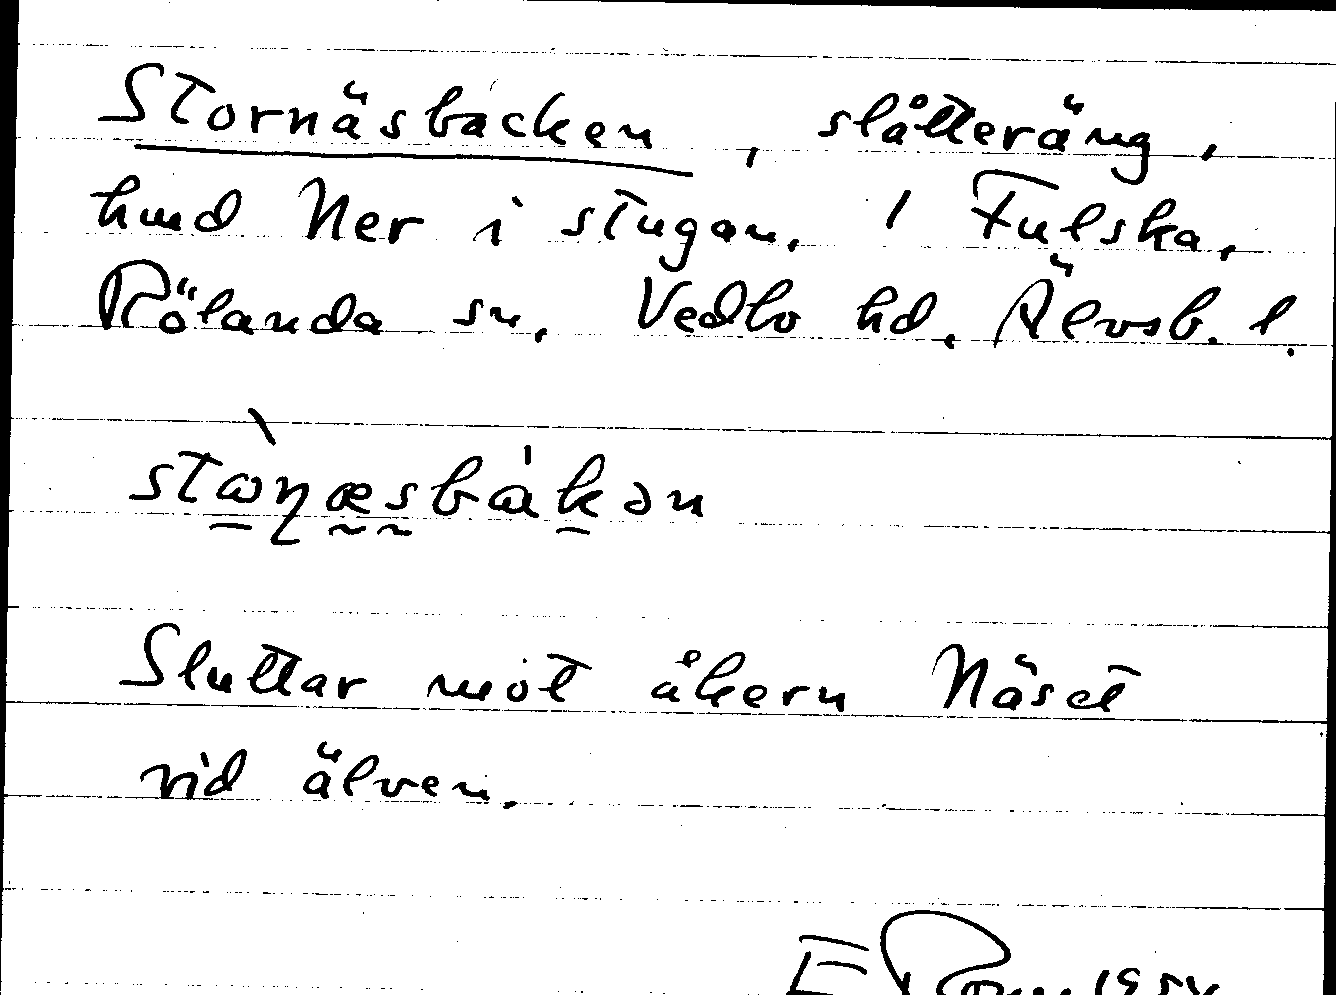 Stornäsbacken, slåtteräng,
hmd Ner i stugan, 1 Fulska,
Rölanda sn, Vedbo hd, Älvsb. l.
stɷ̀ɳæsbakən
Sluttar mot åkern Näset
vid älven.